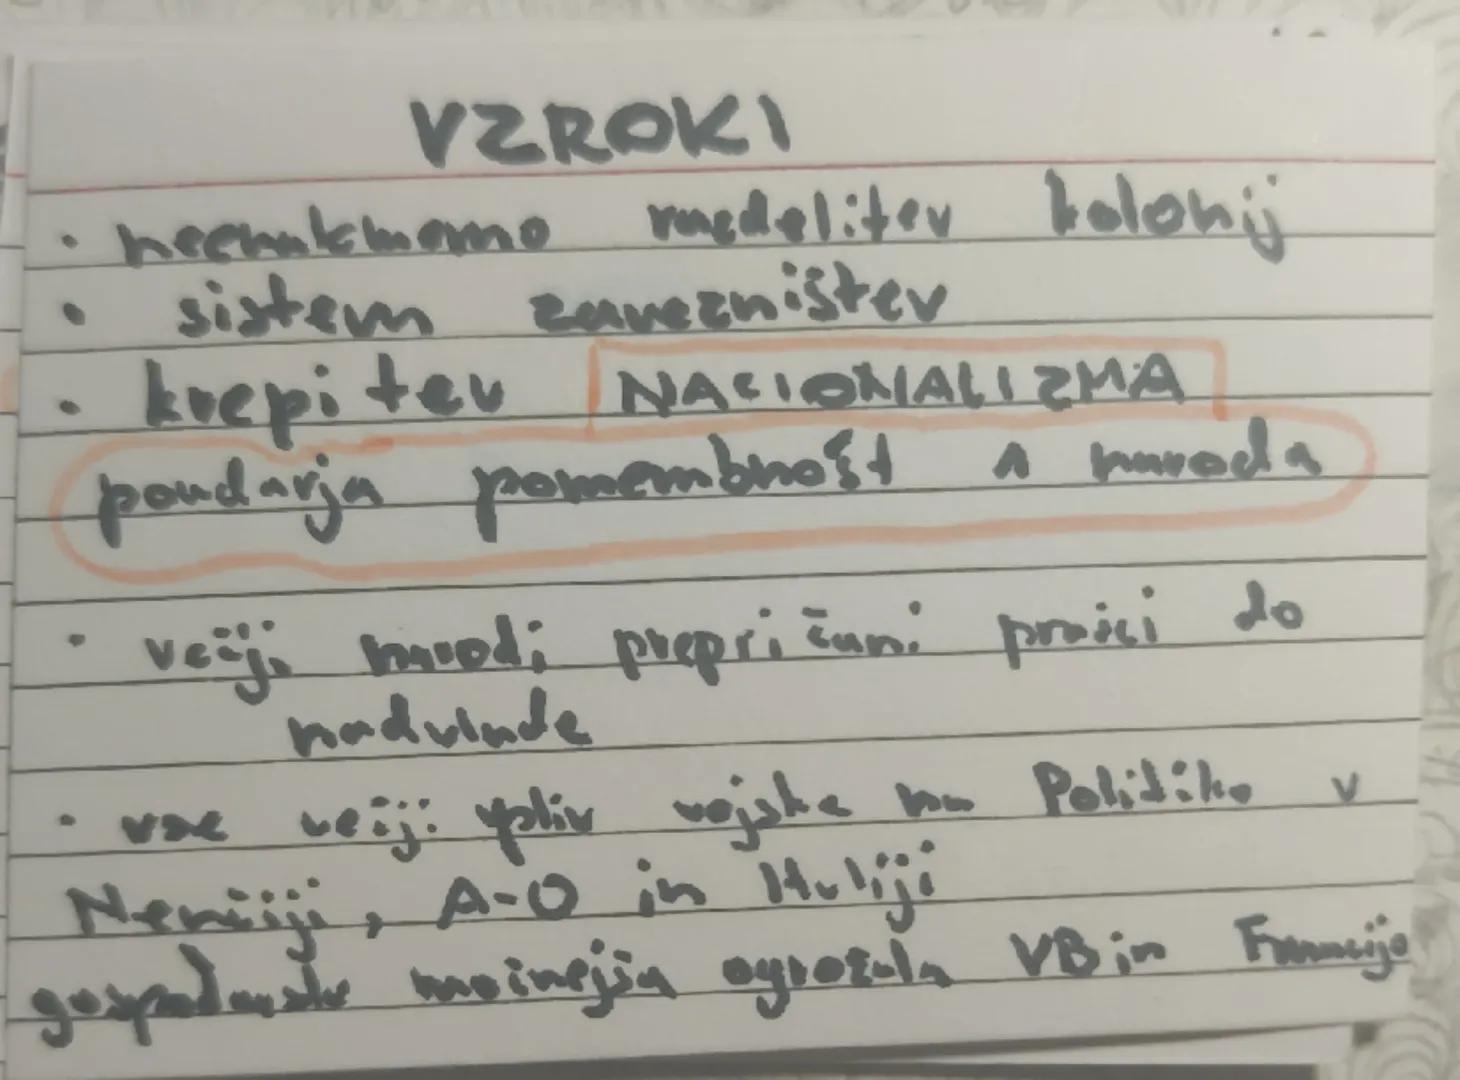 VZROKI
• neenakomerno razdelitev kolonij
• sistem zavezništev
• krepitev NACIONALIZMA
poudarja pomembnost naroda
• večji narodi prepričani pravici do
nadvlade
• vse večji vpliv vojske na Politiko v
Nemčiji, A-O in Italiji
gospodarsko močnejša ogrožala VB in Francijo